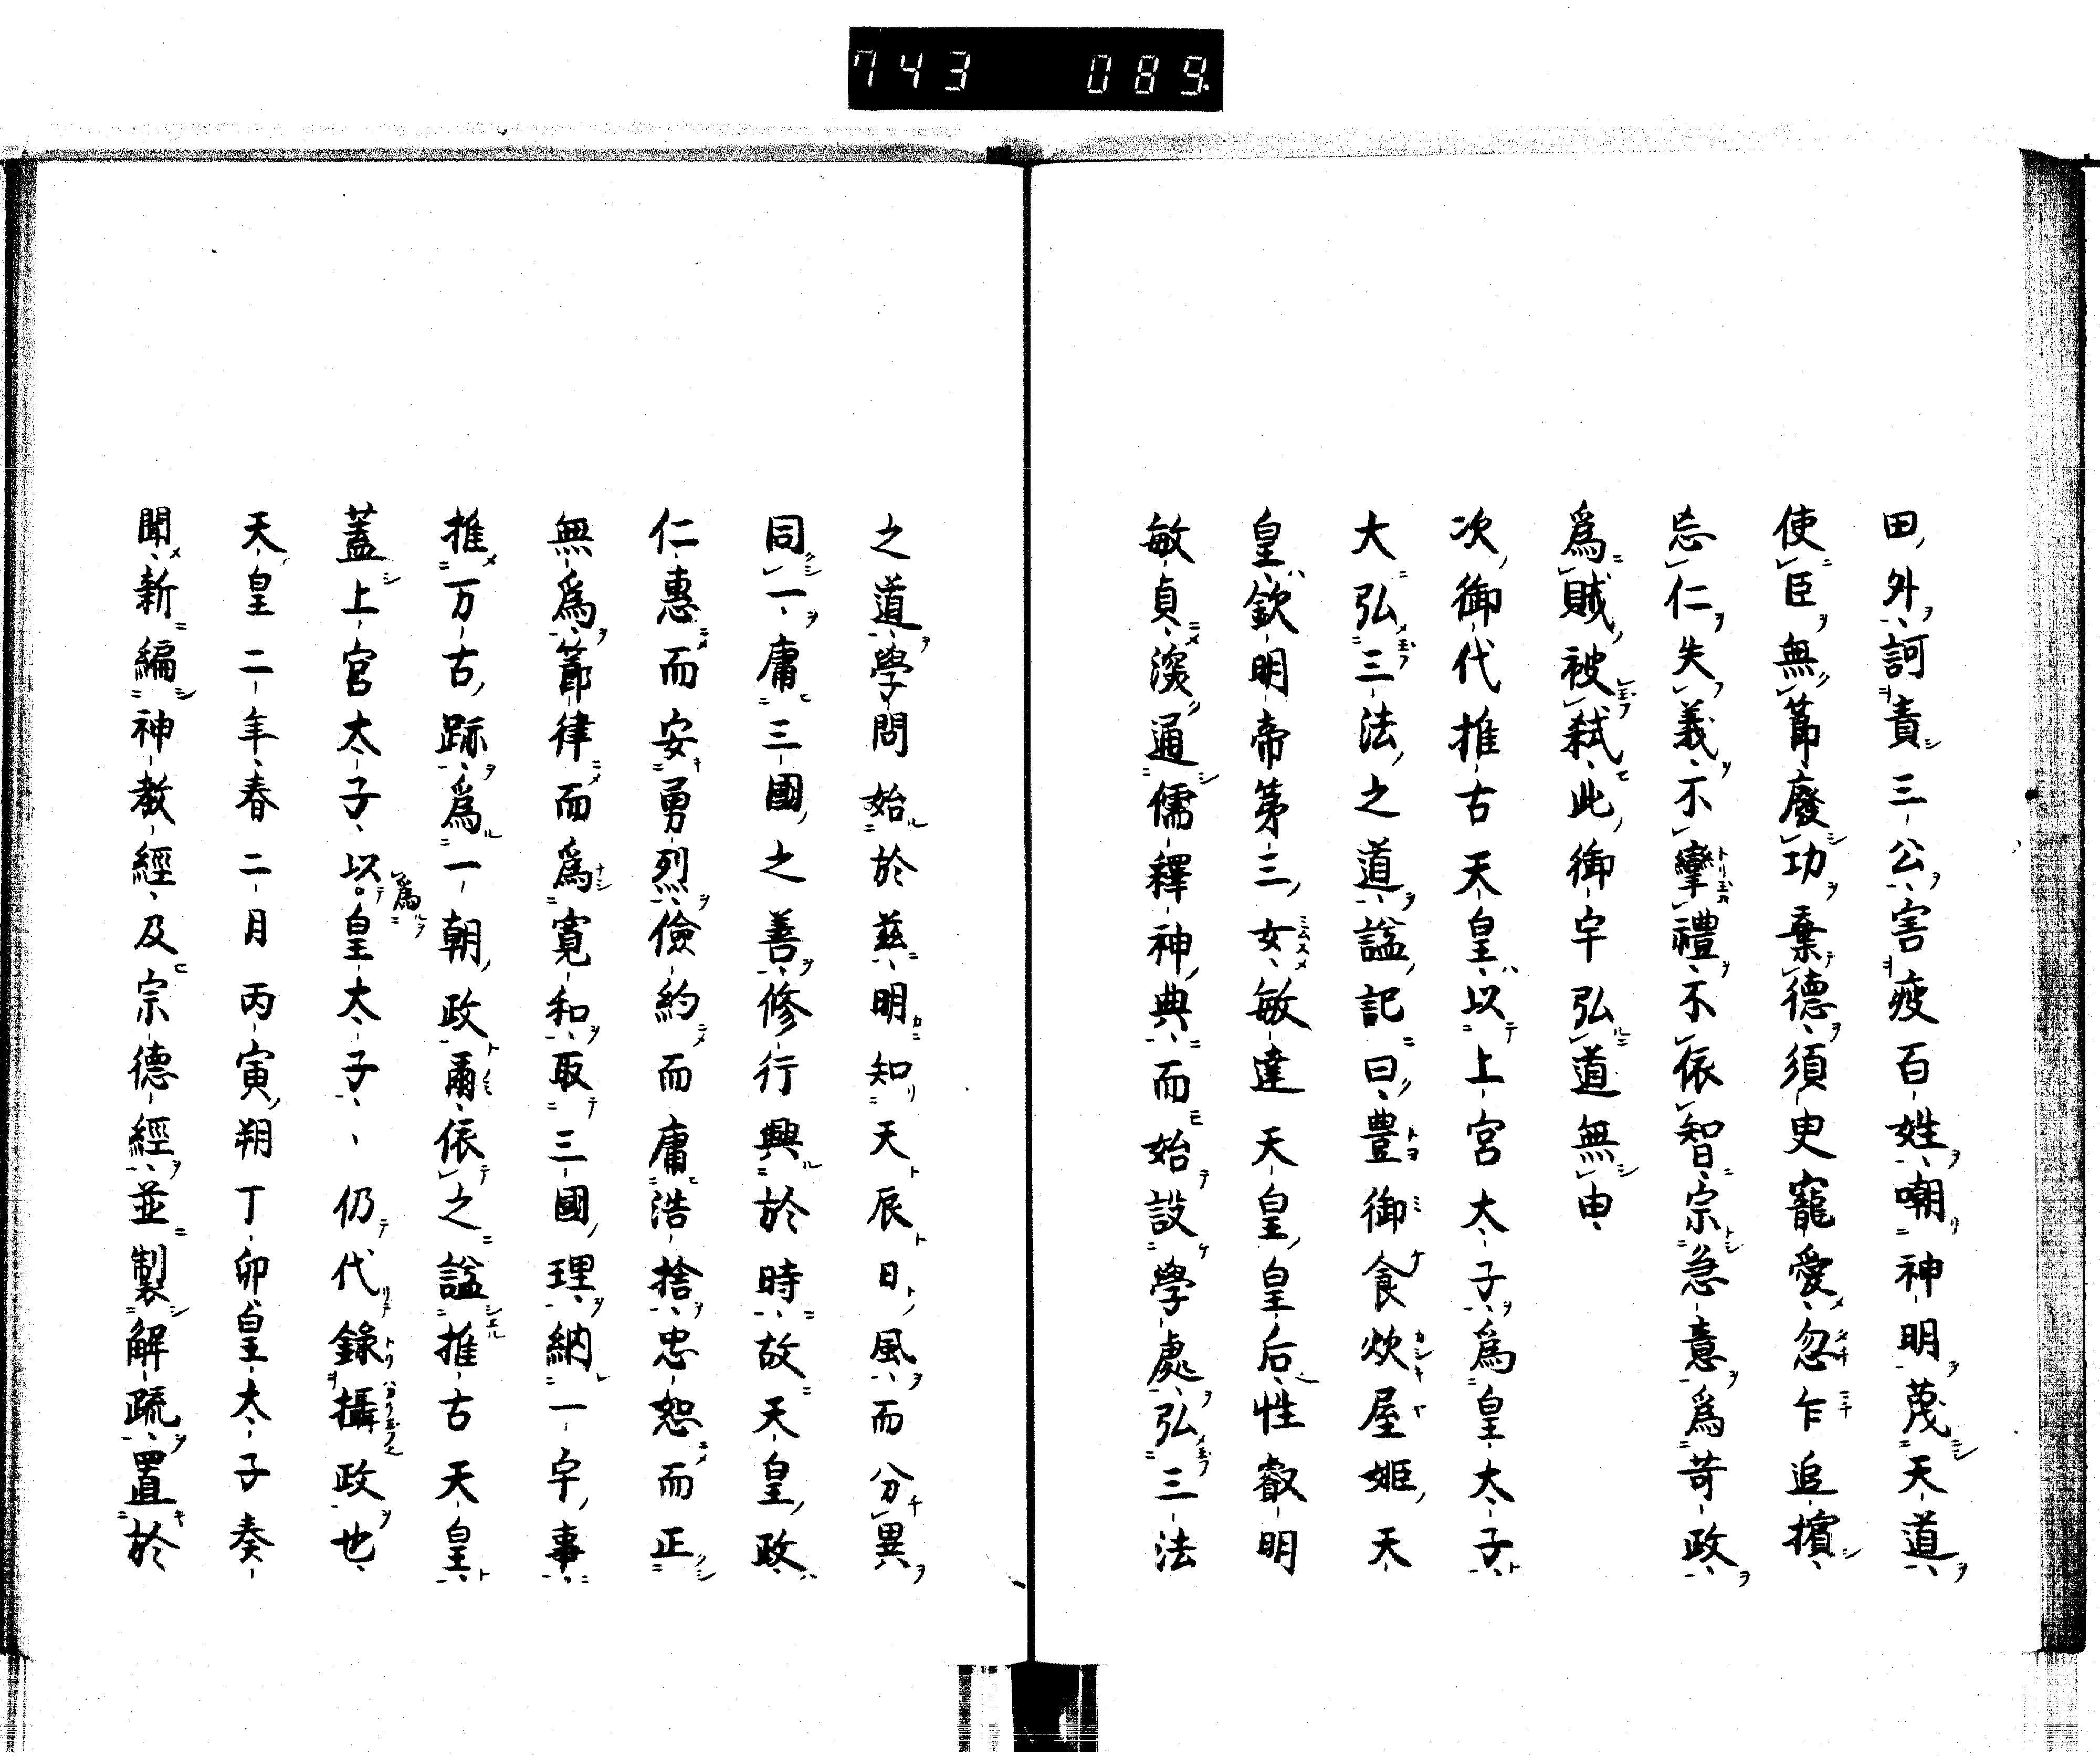 743 089
田外訶責三公害疲百姓嘲神明蔑天道
使臣無節廢功棄德須臾寵愛忽乍追擯
忘仁失義不攣禮不依智宗急意爲苛政
爲賊被弑此御宇弘道無由
次御代推古天皇以上宮太子爲皇太子
大弘三法之道謚記曰豊御食炊屋姬天
皇欽明帝第三女敏達天皇皇后性叡明
敏貞深通儒釋神典而始設學處弘三法
之道學問始於慈明知天辰日風而分異
同一庸三國之善修行興於時故天皇政
仁惠而安勇烈儉約而庸浩捨忠恕而正
無爲節律而爲寬和取三國理納一宇事
推万古跡爲一朝政爾依之謚推古天皇
蓋上宮太子以爲皇太子、仍代錄攝政也
天皇二年春二月丙寅朔丁卯皇太子奏
聞新編神教經及宗德經並製解疏置於